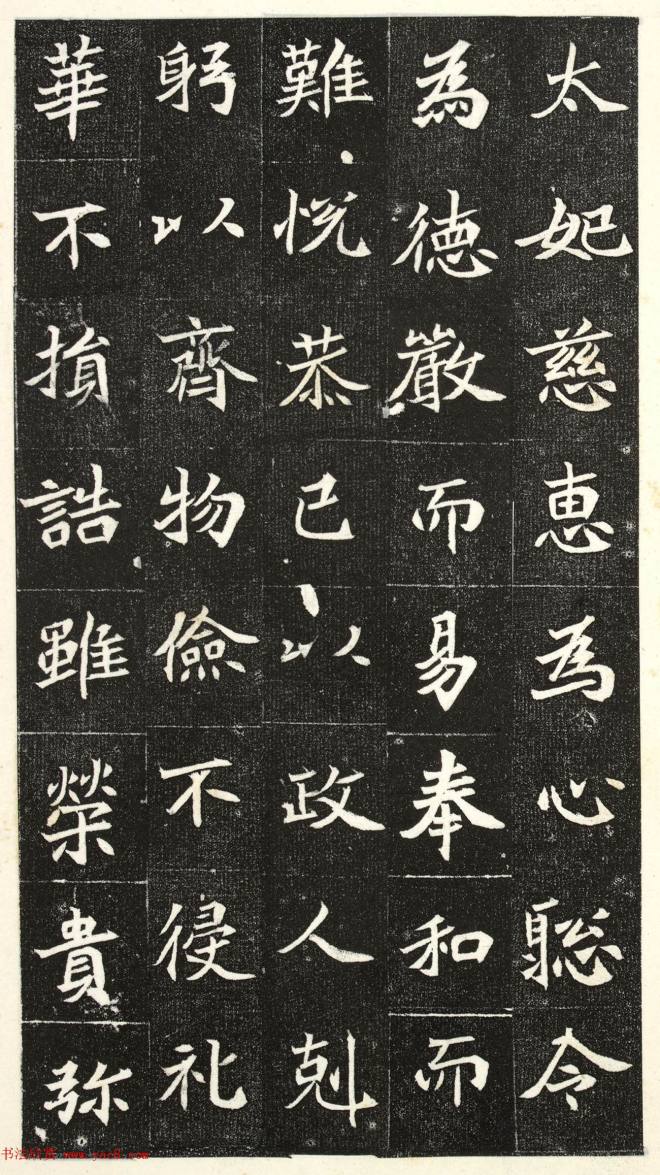 太妃慈恵為心聡令
為徳嚴而易奉和而
難悅恭己以政人剋
躬以齊物儉不侵礼
華不損誥雖榮貴弥
书法欣赏 www.yac8.com